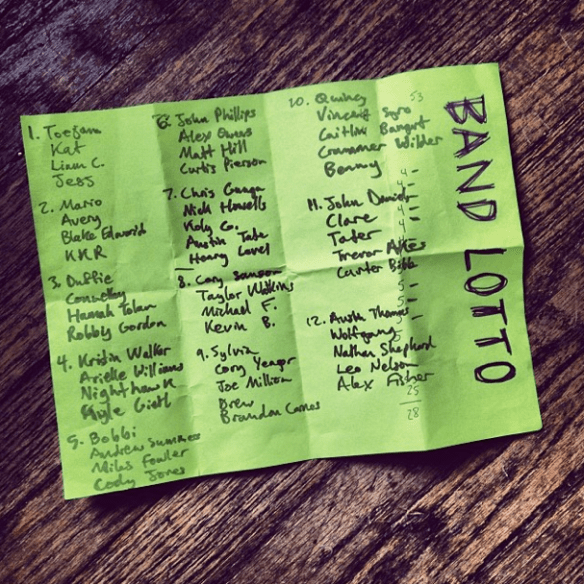 BAND LOTTO
1. Toejam
Kat
Liam C.
Jess
2. Mario
Avery
Blake Edwards
KKR
3. Duffie
Connelley
Hannah
Robby Gordon
4. Kristin Walker
Arielle Williams
Nighthawk
Kyle
5. Bobbi
Andrew Summers
Miles Fowler
Cody Jones
6. John Phillips
Alex Owens
Matt Hill
Curtis Pierson
7. Chris
Nick Howells
Koly G.
Austin Tate
Henry Level
8. Cory
Taylor Watkins
Michael F.
Kevin B.
9. Sylvia
Cory Yeager
Joe Million
Drew
Brandon
10. Quincy
Vincent
Caitlin Bangert
Wilder
Benny
11. John Daniel
Clare
Tater
Trevor
Carter Bibb
12. Austin Thomas
Wolfgang
Nathan Shepherd
Leo Nelson
Alex Fisher
53
4
4
4
4
5
5
25
28